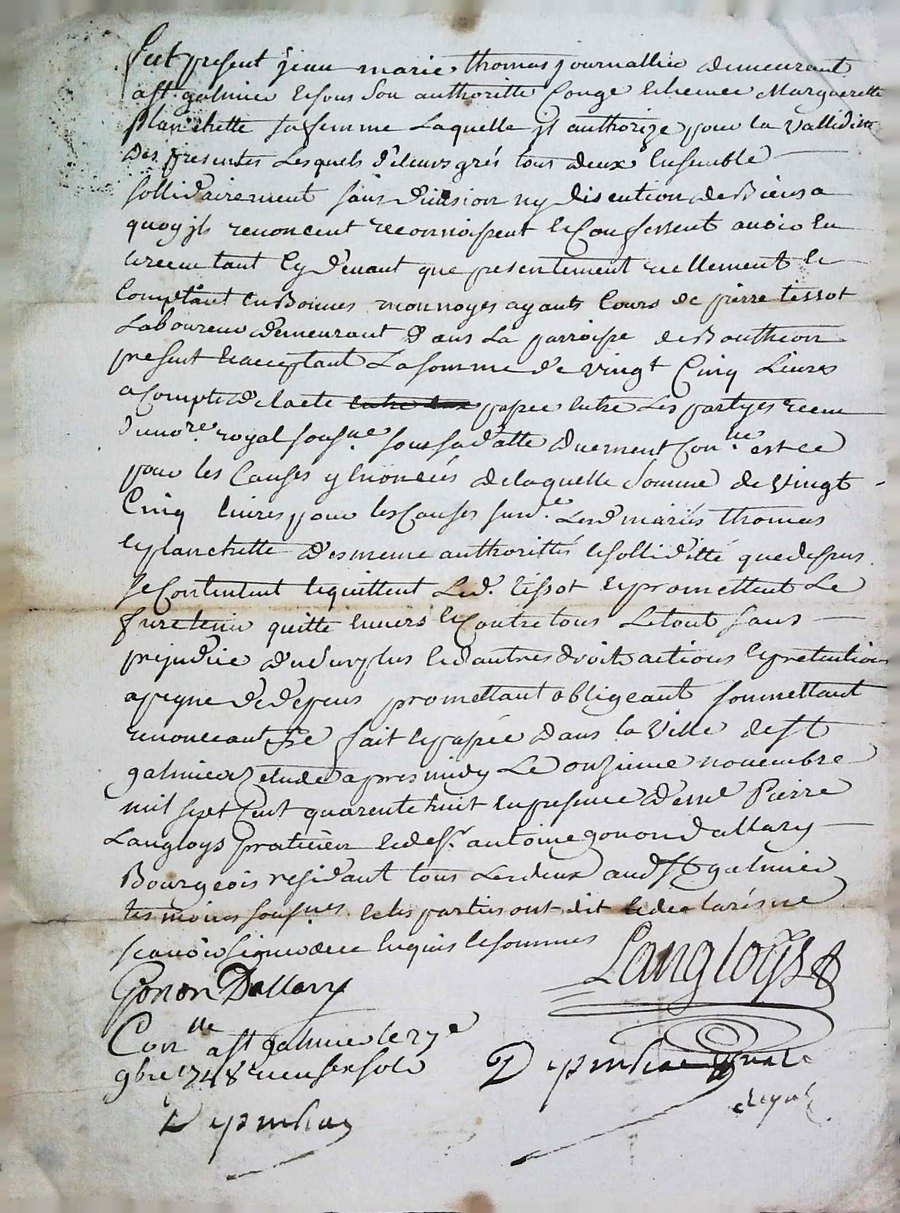 fut present jean marie thomas journallier demeurant
a st. galmier et sous son authoritte Conge et licence Marguerette
planchette sa femme Laquelle jl authorize pour la Valliditte
des presentes Lesquels de leurs grés tous deux Ensemble
sollidairement sans division ny discution de Biens a
quoy jls renoncent reconnoissent et Confessent avoir eu
et receu tant cy devant que presentement reellement et
Comptant en Bonnes monnoyes ayants Cours de pierre tessot
Laboureur demeurant dans La parroisse de Boutheon
present et acceptant La somme de vingt Cinq Livres
a Compte de lacte passée entre Les partyes receu
du no.re royal sousné sous sa datte duement Con.llé est ce
pour les Causes y Enoncées de laquelle somme de vingt
Cinq livres pour les Causes susd.e Lesd. mariés thomas
et planchette des meme authorittés et solliditté que dessus
se Contentent et quittent Led. tissot et promettent Le
faire tenir quitte Envers et Contre tous Le tout sans
prejudice du surplus et dautres droits actions et pretentions
a peyne de depens promettant obligeant soumettant
renonceant &c fait et passé dans la Ville de st
galmier Etude apres midy Le onzieme novembre
mil sept Cent quarente huit en presence de me Pierre
Langloys praticien et de sr. antoine gonon dallary
Bourgeois residant tous Les deux aud. st galmier
tes moins sousnés et les parties ont dit et declarés ne
scavoir signer de ce Enquis et sommés
Langloys
Gonon Dallary
Con.llé a st galmier le 27e
9bre 1748 receu six sols